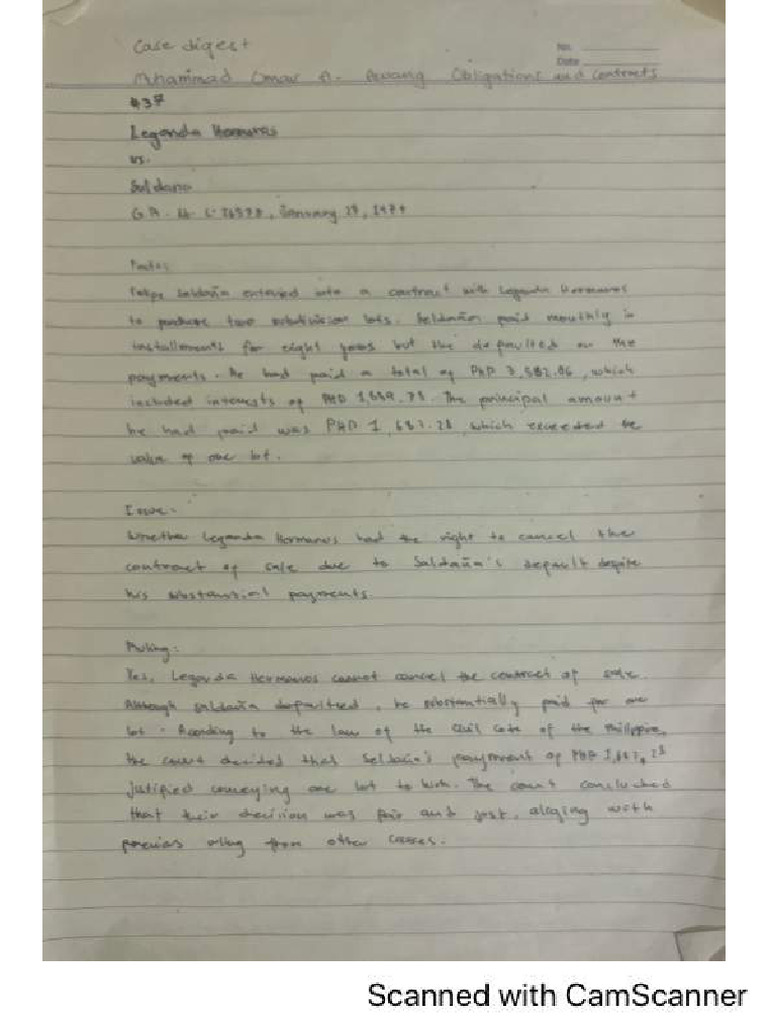 Case digest
No.
Date
Muhammad Omar A. Awang Obligations and Contracts
#37
Legarda Hermanos
vs.
Saldana
G.R. No. L-26578, January 28, 1974
Facts:
Felipe Saldaña entered into a contract with Legarda Hermanos
to purchase two subdivision lots. Saldaña paid monthly in
installments for eight years but the defaulted on the
payments. He had paid a total of PHP 3,582.06, which
included interests of PHP 1,889.78. The principal amount
he had paid was PHP 1,682.28, which exceeded the
value of one lot.
Issue:
Whether Legarda Hermanos had the right to cancel the
contract of sale due to Saldaña's default despite
his substantial payments.
Ruling:
Yes, Legarda Hermanos cannot cancel the contract of sale.
Although Saldaña defaulted, he substantially paid for one
lot. According to the law of the Civil Code of the Philippine,
the court decided that Saldaña's payment of PHP 1,682.28
justified conveying one lot to him. The court concluded
that their decision was fair and just, aligning with
ruling from other cases.
Scanned with CamScanner